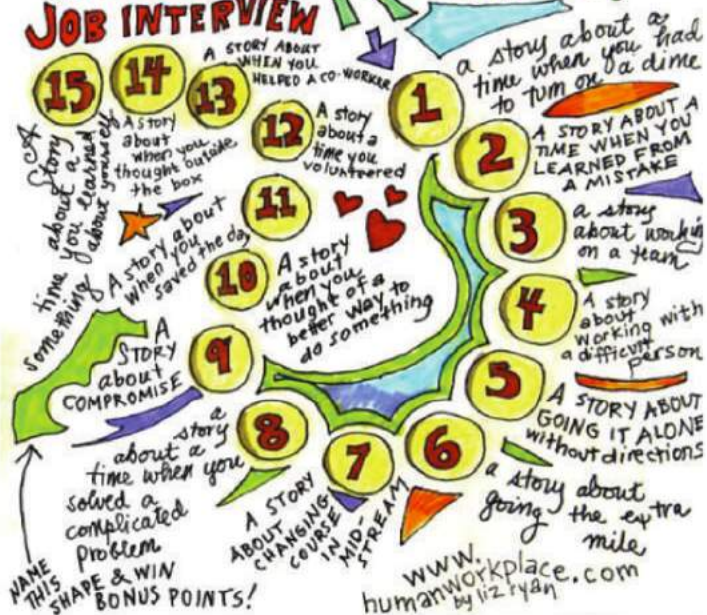 JOB INTERVIEW
1
a story about a
time when you had
to turn on a dime
2
A STORY ABOUT A
TIME WHEN YOU
LEARNED FROM
A MISTAKE
3
a story
about workin
on a team
4
A story
about
working with
a difficult
person
5
A STORY ABOUT
GOING IT ALONE
without directions
6
a story about
going the extra
mile
7
A STORY
ABOUT
CHANGING
COURSE
IN
MID-
STREAM
8
a
story
about a
time when you
solved a
complicated
problem
9
A
STORY
about
COMPROMISE
10
A story
about
when you
thought of a
better way to
do something
11
A story about
when you
saved the day
12
A story
about a
time you
volunteered
13
A STORY ABOUT
WHEN YOU
HELPED A CO-WORKER
14
A story
about
when you
thought outside
the box
15
A
story
about a
time you learned
something about yourself
NAME
THIS
SHAPE & WIN
BONUS POINTS!
www.
humanworkplace.com
by liz ryan